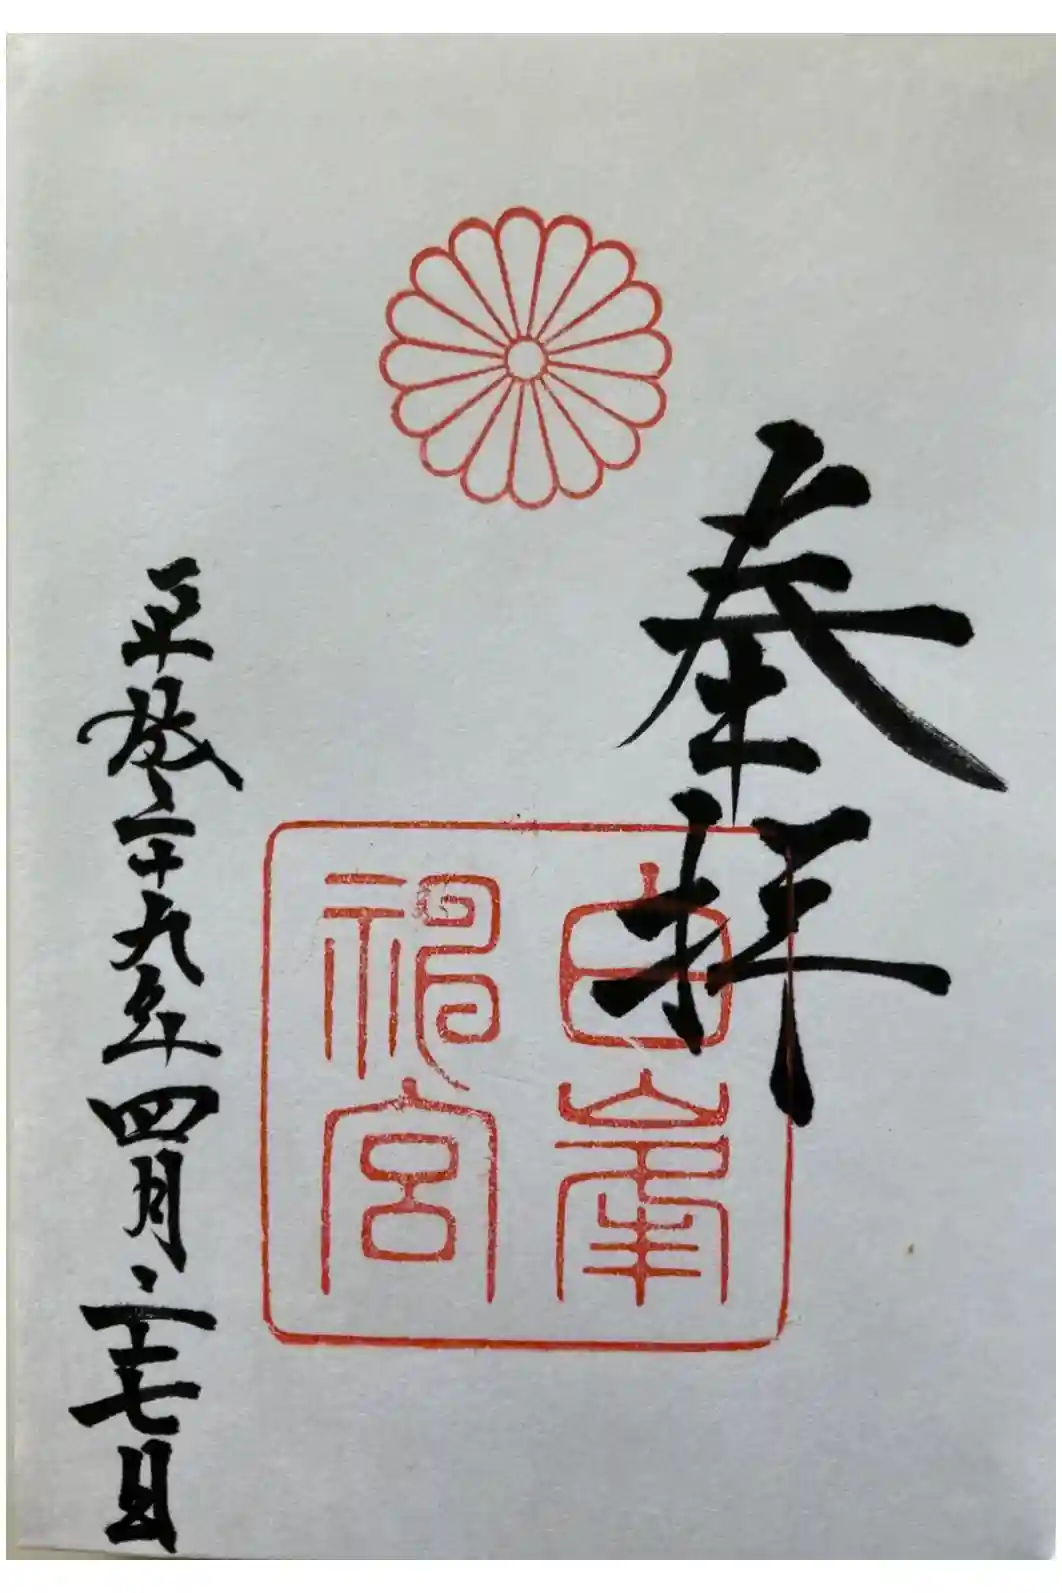 奉拝
白峯
神宮
平成二十九年四月二十七日